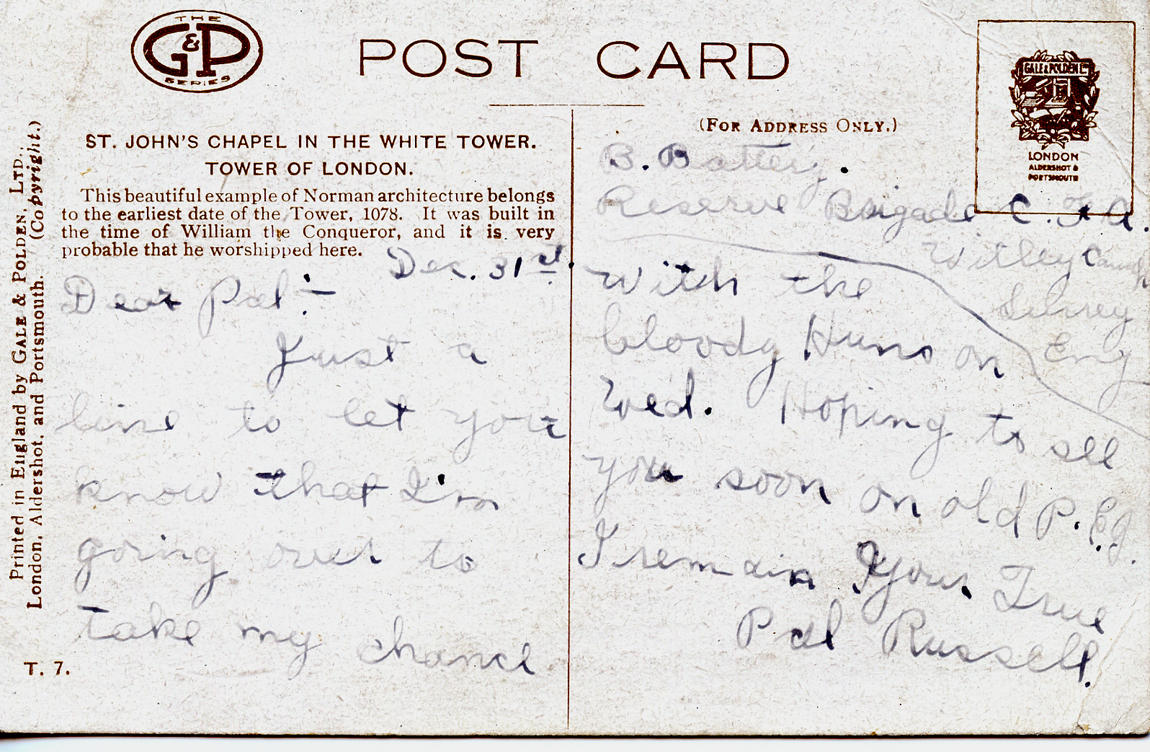 THE
G&P
SERIES
POST CARD
GALE & POLDEN LTD
LONDON
ALDERSHOT &
PORTSMOUTH
ST. JOHN'S CHAPEL IN THE WHITE TOWER.
TOWER OF LONDON.
This beautiful example of Norman architecture belongs
to the earliest date of the Tower, 1078. It was built in
the time of William the Conqueror, and it is very
probable that he worshipped here.
Dec. 31st.
Dear Pal:-
Just a
line to let you
know that I'm
going over to
take my chance
(FOR ADDRESS ONLY.)
B. Battery.
Reserve Brigade C. F. A.
Witley Camp
Surrey
Eng
with the
bloody Huns on
Wed. Hoping to see
you soon on old P.E.I.
I remain Your True
Pal Russell.
Printed in England by GALE & POLDEN, LTD.,
London, Aldershot, and Portsmouth. (Copyright.)
T. 7.